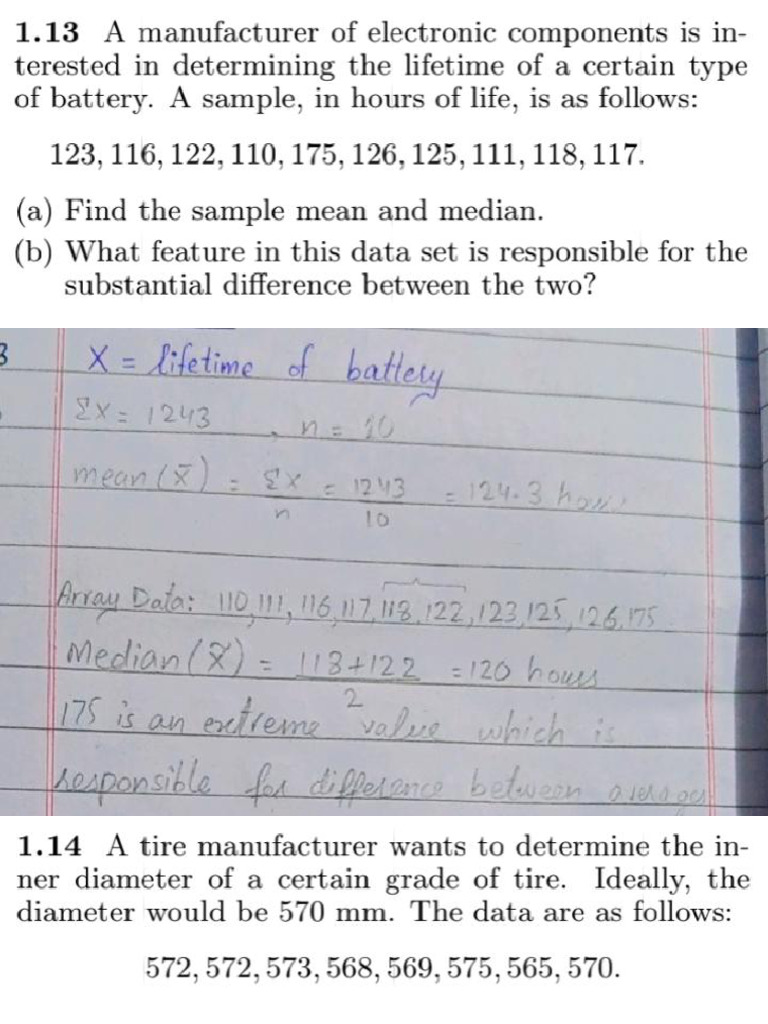 1.13 A manufacturer of electronic components is in-
terested in determining the lifetime of a certain type
of battery. A sample, in hours of life, is as follows:
123, 116, 122, 110, 175, 126, 125, 111, 118, 117.
(a) Find the sample mean and median.
(b) What feature in this data set is responsible for the
substantial difference between the two?
3 X = lifetime of battery
ΣX = 1243 , n = 10
mean (x̄) = ΣX = 1243 = 124.3 hours
n 10
Array Data: 110, 111, 116, 117, 118, 122, 123, 125, 126, 175
Median (x̃) = 118+122 = 120 hours
2
175 is an extreme value which is
responsible for difference between averages
1.14 A tire manufacturer wants to determine the in-
ner diameter of a certain grade of tire. Ideally, the
diameter would be 570 mm. The data are as follows:
572, 572, 573, 568, 569, 575, 565, 570.